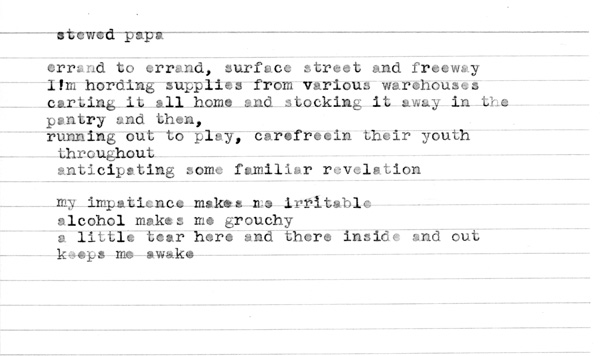 stewed papa
errand to errand, surface street and freeway
I'm hording supplies from various warehouses
carting it all home and stocking it away in the
pantry and then,
running out to play, carefreein their youth
throughout
anticipating some familiar revelation
my impatience makes me irritable
alcohol makes me grouchy
a little tear here and there inside and out
keeps me awake